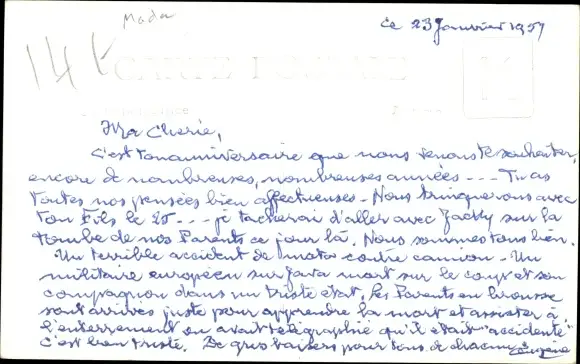 Moda
ce 23 Janvier 1957
14
CARTE POSTALE
Ma Cherie,
C'est ton anniversaire que nous venons te souhaiter,
encore de nombreuses, nombreuses années --- Tu as
toutes nos pensées bien affectueuses - Nous trinquerons avec
ton Fils le 25 --- je tacherai d'aller avec Jacky sur la
tombe de nos Parents ce jour là. Nous sommes tous bien.
Un terrible accident de moto contre camion - Un
militaire européen sur Java mort sur le coup et son
compagnon dans un triste état. Les Parents en brousse
sont arrivés juste pour apprendre la mort et assister à
l'enterrement on avait télégraphié qu'il était "accidenté"
C'est bien triste. De gros baisers pour tous de chacun